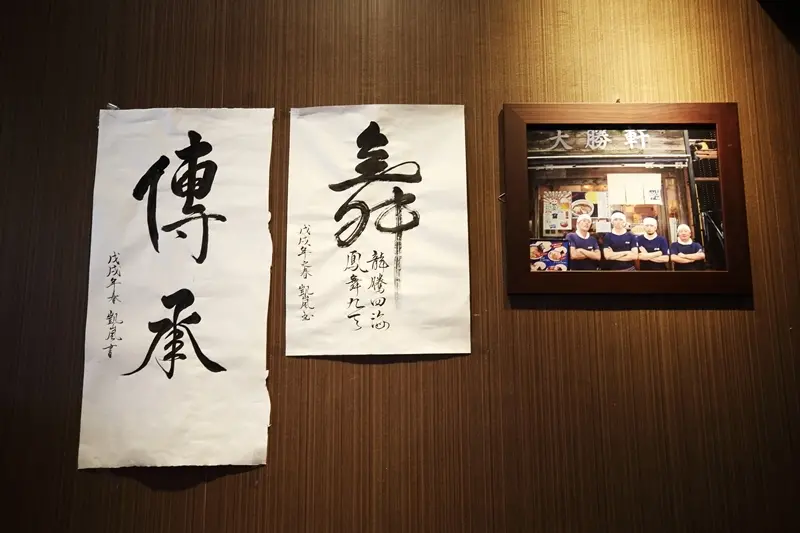 傳承
戊戌年春 凱嵐書
舞
龍騰四海
鳳舞九天
戊戌年之春 凱嵐書
大勝軒